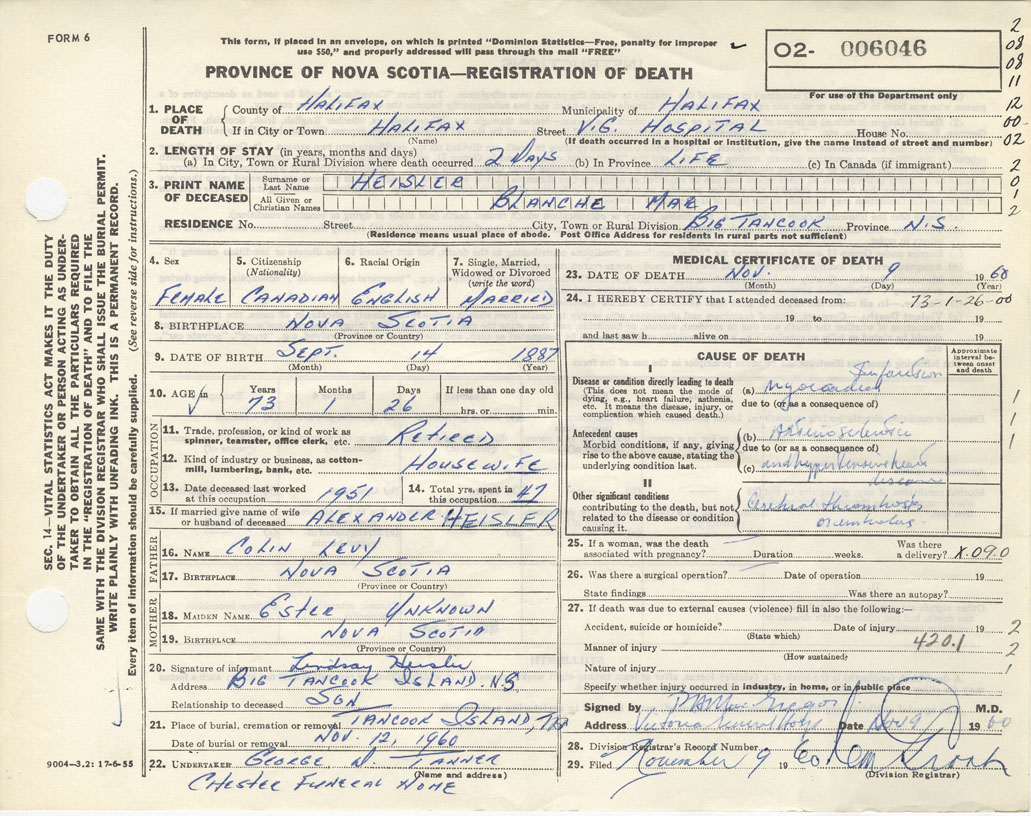 FORM 6
This form, if placed in an envelope, on which is printed "Dominion Statistics—Free, penalty for improper
use $50," and properly addressed will pass through the mail "FREE"
O2- 006046
For use of the Department only
PROVINCE OF NOVA SCOTIA—REGISTRATION OF DEATH
2
08
08
11
12
00-
02
2
0
1
2
1. PLACE OF DEATH
County of HALIFAX Municipality of HALIFAX
If in City or Town HALIFAX Street V.G. HOSPITAL House No.
(Name) (If death occurred in a hospital or institution, give the name instead of street and number)
2. LENGTH OF STAY (in years, months and days)
(a) In City, Town or Rural Division where death occurred 2 DAYS (b) In Province LIFE (c) In Canada (if immigrant)
3. PRINT NAME OF DECEASED
Surname or Last Name HEISLER
All Given or Christian Names BLANCHE MAE
RESIDENCE No. Street City, Town or Rural Division BIG TANCOOK Province N.S.
(Residence means usual place of abode. Post Office Address for residents in rural parts not sufficient)
4. Sex
FEMALE
5. Citizenship
(Nationality)
CANADIAN
6. Racial Origin
ENGLISH
7. Single, Married,
Widowed or Divorced
(write the word)
MARRIED
8. BIRTHPLACE NOVA SCOTIA
(Province or Country)
9. DATE OF BIRTH SEPT. 14 1887
(Month) (Day) (Year)
10. AGE in Years Months Days If less than one day old
73 1 26 hrs. or min.
OCCUPATION
11. Trade, profession, or kind of work as
spinner, teamster, office clerk, etc. RETIRED
12. Kind of industry or business, as cotton-
mill, lumbering, bank, etc. HOUSEWIFE
13. Date deceased last worked
at this occupation 1951
14. Total yrs. spent in
this occupation 47
15. If married give name of wife
or husband of deceased ALEXANDER HEISLER
FATHER
16. NAME COLIN LEVY
17. BIRTHPLACE NOVA SCOTIA
(Province or Country)
MOTHER
18. MAIDEN NAME ESTER UNKNOWN
19. BIRTHPLACE NOVA SCOTIA
(Province or Country)
20. Signature of informant Lindsay Heisler
Address BIG TANCOOK ISLAND, N.S.
Relationship to deceased SON
21. Place of burial, cremation or removal TANCOOK ISLAND,
Date of burial or removal NOV. 12, 1960
22. UNDERTAKER GEORGE N. TANNER
(Name and address)
CHESTER FUNERAL HOME
MEDICAL CERTIFICATE OF DEATH
23. DATE OF DEATH NOV. 9 1960
(Month) (Day) (Year)
24. I HEREBY CERTIFY that I attended deceased from: 73-1-26-00
19 to 19
and last saw h alive on 19
CAUSE OF DEATH
Approximate
interval be-
tween onset
and death
I
Disease or condition directly leading to death
(This does not mean the mode of
dying, e.g., heart failure, asthenia,
etc. It means the disease, injury, or
complication which caused death.)
(a) Myocardial Infarction
due to (or as a consequence of)
Antecedent causes
Morbid conditions, if any, giving
rise to the above cause, stating the
underlying condition last.
(b) Arteriosclerotic
due to (or as a consequence of)
(c) and hypertensive heart
disease
II
Other significant conditions
contributing to the death, but not
related to the disease or condition
causing it.
Cerebral thrombosis
or embolus.
1
1
1
25. If a woman, was the death
associated with pregnancy? Duration weeks. Was there
a delivery? X.090
26. Was there a surgical operation? Date of operation 19
State findings Was there an autopsy?
27. If death was due to external causes (violence) fill in also the following:—
Accident, suicide or homicide? Date of injury 19
(State which)
Manner of injury 420.1
(How sustained)
Nature of injury
2
2
1
Specify whether injury occurred in industry, in home, or in public place
Signed by M.D.
Address Victoria General Hosp Date Nov 9 1960
28. Division Registrar's Record Number
29. Filed November 9 1960
(Division Registrar)
SEC. 14—VITAL STATISTICS ACT MAKES IT THE DUTY
OF THE UNDERTAKER OR PERSON ACTING AS UNDER-
TAKER TO OBTAIN ALL THE PARTICULARS REQUIRED
IN THE "REGISTRATION OF DEATH" AND TO FILE THE
SAME WITH THE DIVISION REGISTRAR WHO SHALL ISSUE THE BURIAL PERMIT.
WRITE PLAINLY WITH UNFADING INK. THIS IS A PERMANENT RECORD.
Every item of information should be carefully supplied. (See reverse side for instructions.)
9004—3.2: 17-6-55